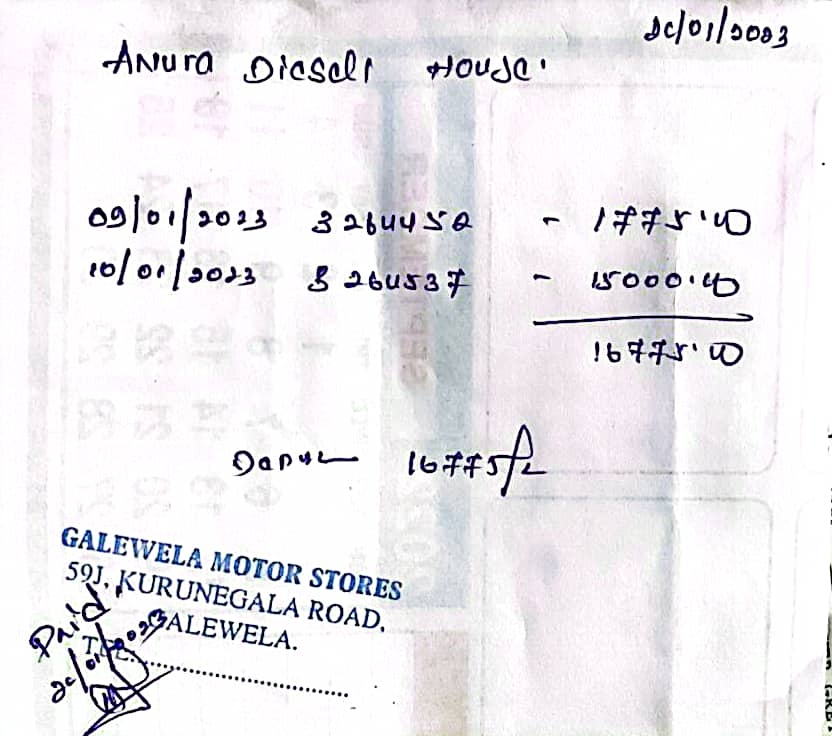 20/01/2023
Anura Diesel House.
09/01/2023 3264452 - 1775.00
10/01/2023 3264537 - 15000.00
16775.00
16775/=
GALEWELA MOTOR STORES
59J, KURUNEGALA ROAD,
GALEWELA.
TEL:..............................
Paid
20/01/2023